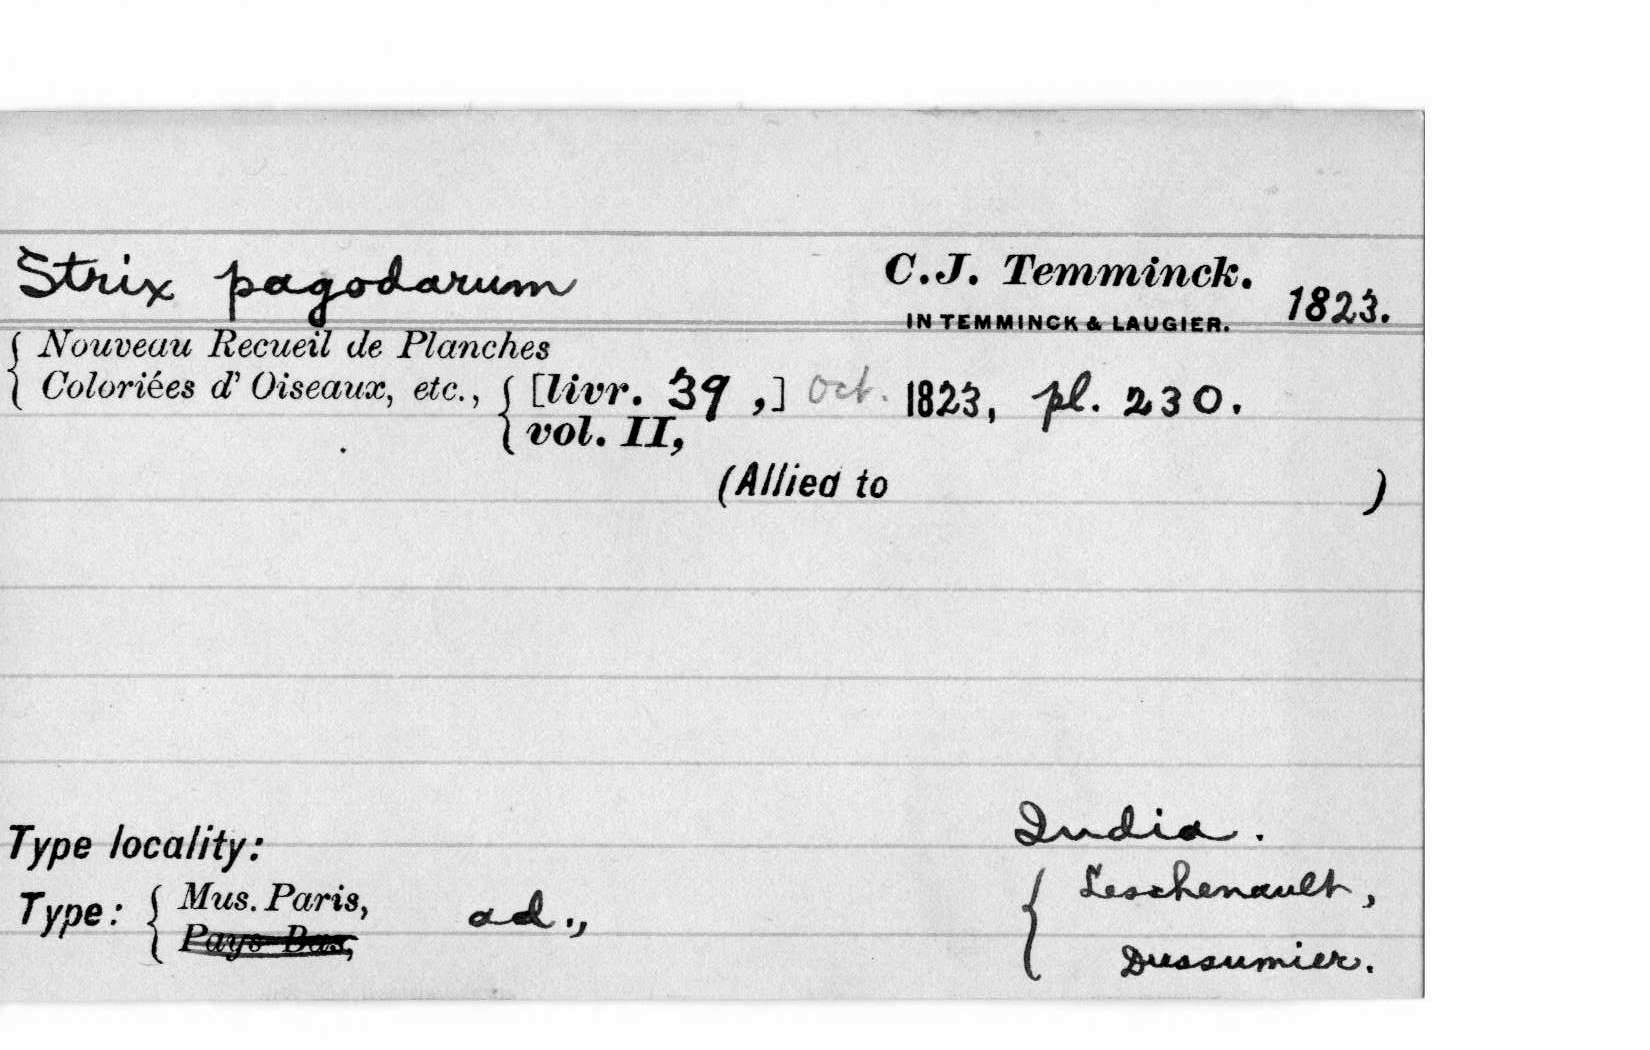 Strix pagodarum C.J. Temminck. 1823.
IN TEMMINCK & LAUGIER.
Nouveau Recueil de Planches
Coloriées d' Oiseaux, etc., [livr. 39 ,] Oct. 1823, pl. 230.
vol. II,
(Allied to )
Type locality: India.
Type: Mus. Paris, ad., Leschenault,
Pays-Bas, Dussumier.